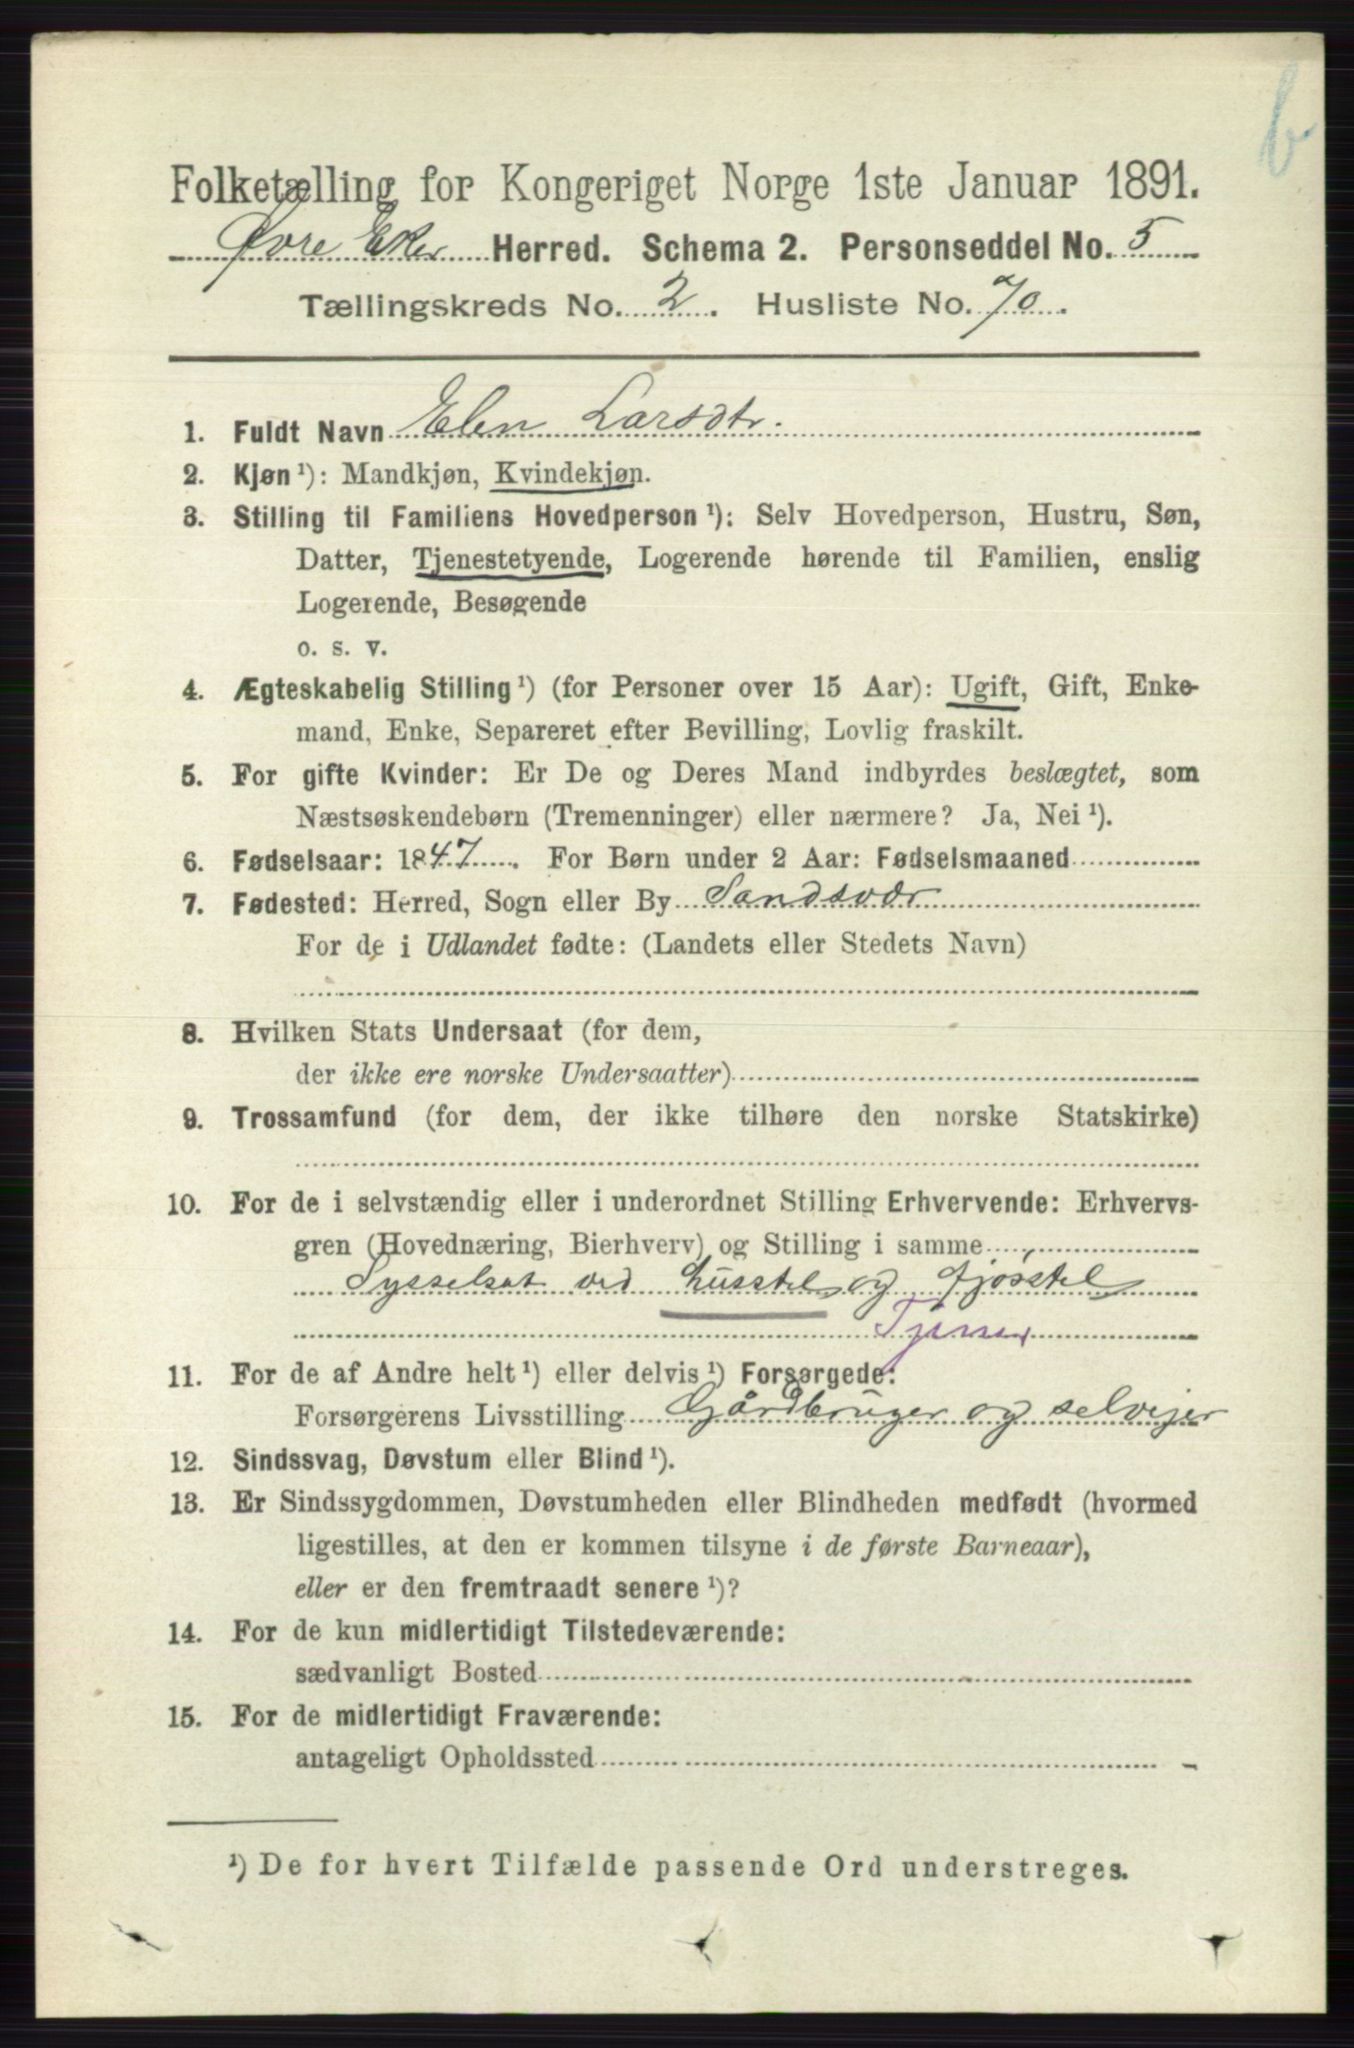 b
Folketælling for Kongeriget Norge 1ste Januar 1891.
Øvre Eker Herred. Schema 2. Personseddel No. 5
Tællingskreds No. 2. Husliste No. 70.
1. Fuldt Navn Elen Larsdtr.
2. Kjøn ¹): Mandkjøn, Kvindekjøn.
3. Stilling til Familiens Hovedperson ¹): Selv Hovedperson, Hustru, Søn,
Datter, Tjenestetyende, Logerende hørende til Familien, enslig
Logerende, Besøgende
o. s. v.
4. Ægteskabelig Stilling ¹) (for Personer over 15 Aar): Ugift, Gift, Enke-
mand, Enke, Separeret efter Bevilling, Lovlig fraskilt.
5. For gifte Kvinder: Er De og Deres Mand indbyrdes beslægtet, som
Næstsøskendebørn (Tremenninger) eller nærmere? Ja, Nei ¹).
6. Fødselsaar: 1847. For Børn under 2 Aar: Fødselsmaaned
7. Fødested: Herred, Sogn eller By Sandsvær
For de i Udlandet fødte: (Landets eller Stedets Navn)
8. Hvilken Stats Undersaat (for dem,
der ikke ere norske Undersaatter)
9. Trossamfund (for dem, der ikke tilhøre den norske Statskirke)
10. For de i selvstændig eller i underordnet Stilling Erhvervende: Erhvervs-
gren (Hovednæring, Bierhverv) og Stilling i samme
Sysselsat ved husstel og fjösstel
Tjener
11. For de af Andre helt ¹) eller delvis ¹) Forsørgede:
Forsørgerens Livsstilling Gårdbruger og selveier
12. Sindssvag, Døvstum eller Blind ¹).
13. Er Sindssygdommen, Døvstumheden eller Blindheden medfødt (hvormed
ligestilles, at den er kommen tilsyne i de første Barneaar),
eller er den fremtraadt senere ¹)?
14. For de kun midlertidigt Tilstedeværende:
sædvanligt Bosted
15. For de midlertidigt Fraværende:
antageligt Opholdssted
¹) De for hvert Tilfælde passende Ord understreges.